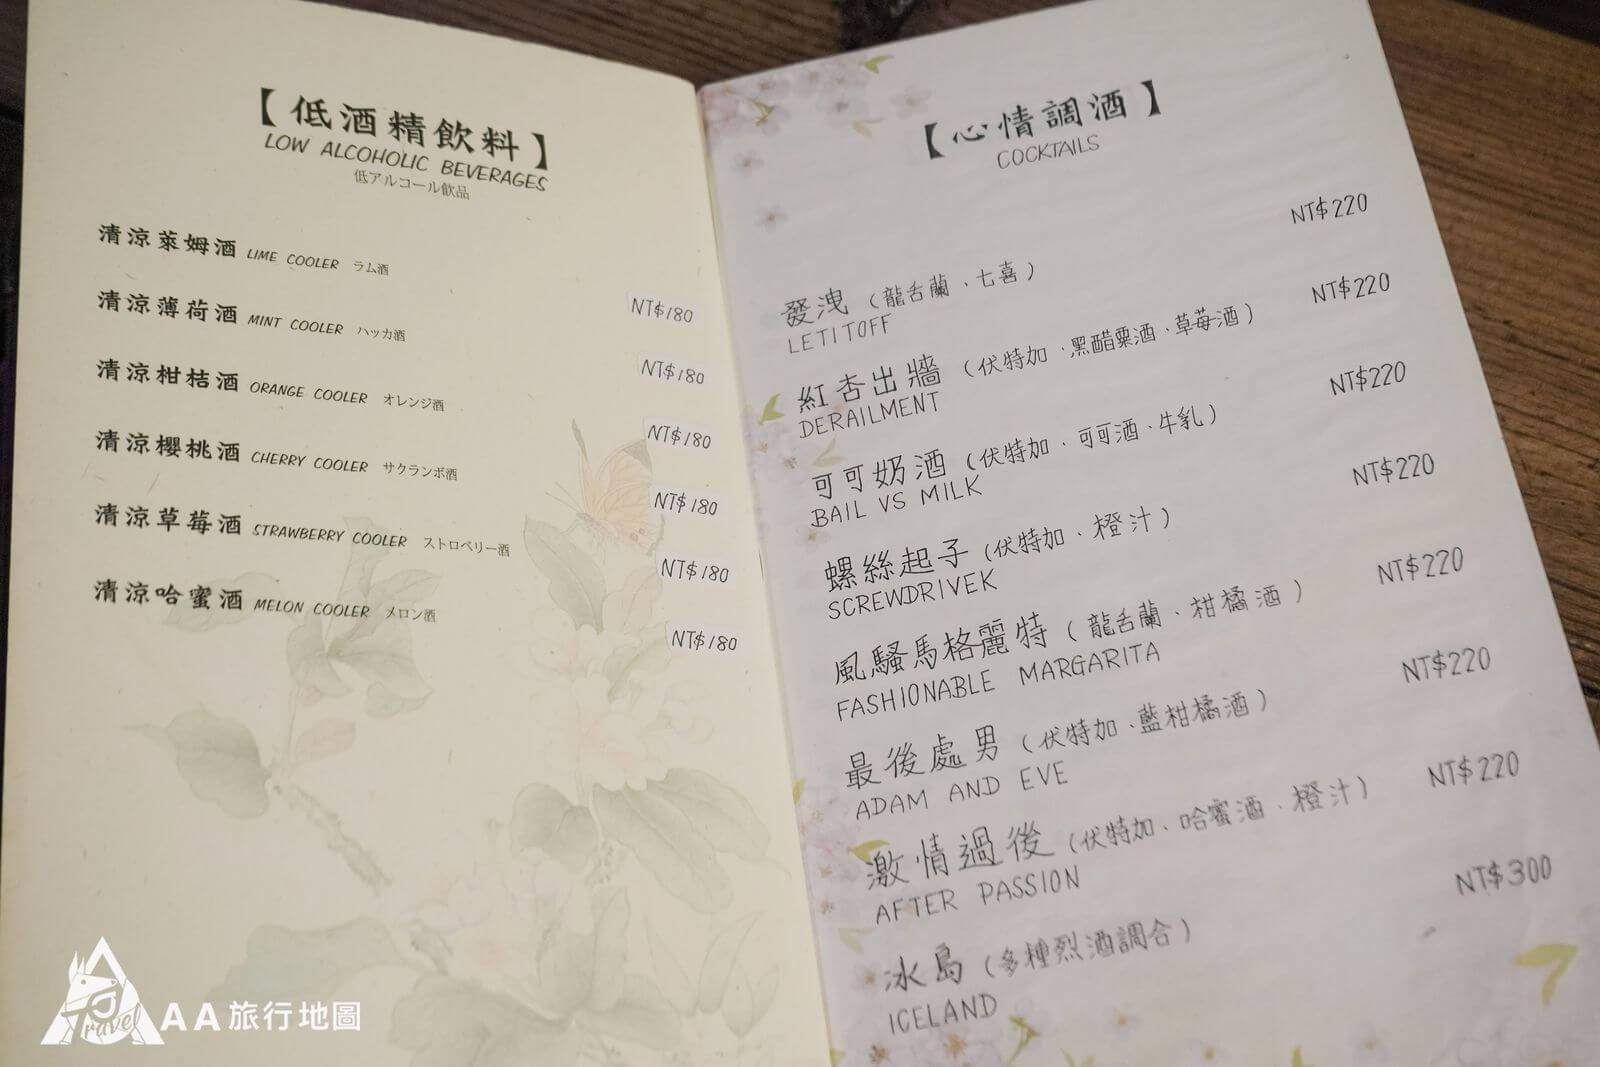 【低酒精飲料】
LOW ALCOHOLIC BEVERAGES
低アルコール飲品
清涼萊姆酒 LIME COOLER ラム酒 NT$180
清涼薄荷酒 MINT COOLER ハッカ酒 NT$180
清涼柑桔酒 ORANGE COOLER オレンジ酒 NT$180
清涼櫻桃酒 CHERRY COOLER サクランボ酒 NT$180
清涼草莓酒 STRAWBERRY COOLER ストロベリー酒 NT$180
清涼哈蜜酒 MELON COOLER メロン酒 NT$180
【心情調酒】
COCKTAILS
發洩（龍舌蘭、七喜） NT$220
LETITOFF
紅杏出牆（伏特加、黑醋粟酒、草莓酒） NT$220
DERAILMENT
可可奶酒（伏特加、可可酒、牛乳） NT$220
BAIL VS MILK
螺絲起子（伏特加、橙汁） NT$220
SCREWDRIVEK
風騷馬格麗特（龍舌蘭、柑橘酒） NT$220
FASHIONABLE MARGARITA
最後處男（伏特加、藍柑橘酒） NT$220
ADAM AND EVE
激情過後（伏特加、哈蜜酒、橙汁） NT$220
AFTER PASSION
冰島（多種烈酒調合） NT$300
ICELAND
Travel
AA旅行地圖